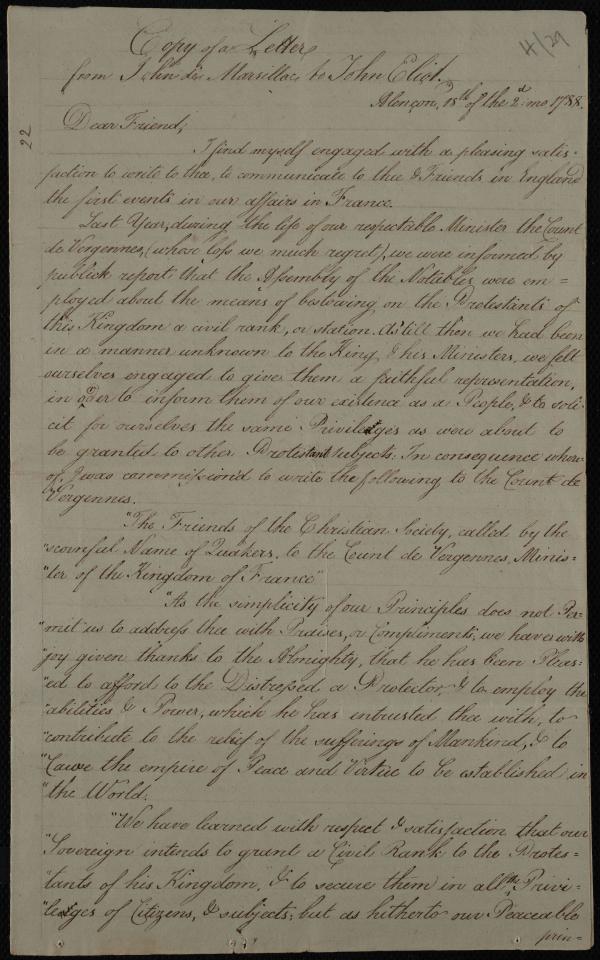 4/29
Copy of a Letter
from John de Marsillac to John Eliot.
Alençon, 18th of the 2d. mo 1788.
22
Dear Friend,
I find myself engaged with a pleasing satis-
faction to write to thee, to communicate to thee & Friends in England
the first events in our affairs in France.
Last Year, during the life of our respectable Minister the Count
de Vergennes, (whose loss we much regret), we were informed by
publick report that the Assembly of the Notables were em=
ployed about the means of bestowing on the Protestants of
this Kingdom a civil rank, or station. As till then we had been
in a manner unknown to the King, & his Ministers, we felt
ourselves engaged to give them a faithful representation,
in order to inform them of our existence as a People, & to soli-
cit for ourselves the same Privileges as were about to
be granted to other Protestant subjects: In consequence where-
of, I was commission'd to write the following to the Count de
Vergennes.
"The Friends of the Christian Society, called by the
"scornful Name of Quakers, to the Count de Vergennes, Minis=
"ter of the Kingdom of France"
"As the simplicity of our Principles does not Per-
"mit us to address thee with Praises, or Compliments, we have with
"joy given thanks to the Almighty, that he has been Pleas-
"ed to afford to the Distressed a Protector, & to employ the
"abilities & Power, which he has intrusted thee with, to
"contribute to the relief of the sufferings of Mankind, & to
"Cause the empire of Peace and Virtue to be established in
"the World.
"We have learned with respect & satisfaction that our
"Sovereign intends to grant a Civil Rank to the Protes-
"tants of his Kingdom, & to secure them in all the Privi-
"leges of Citizens, & subjects; but as hitherto our Peaceable
prin-